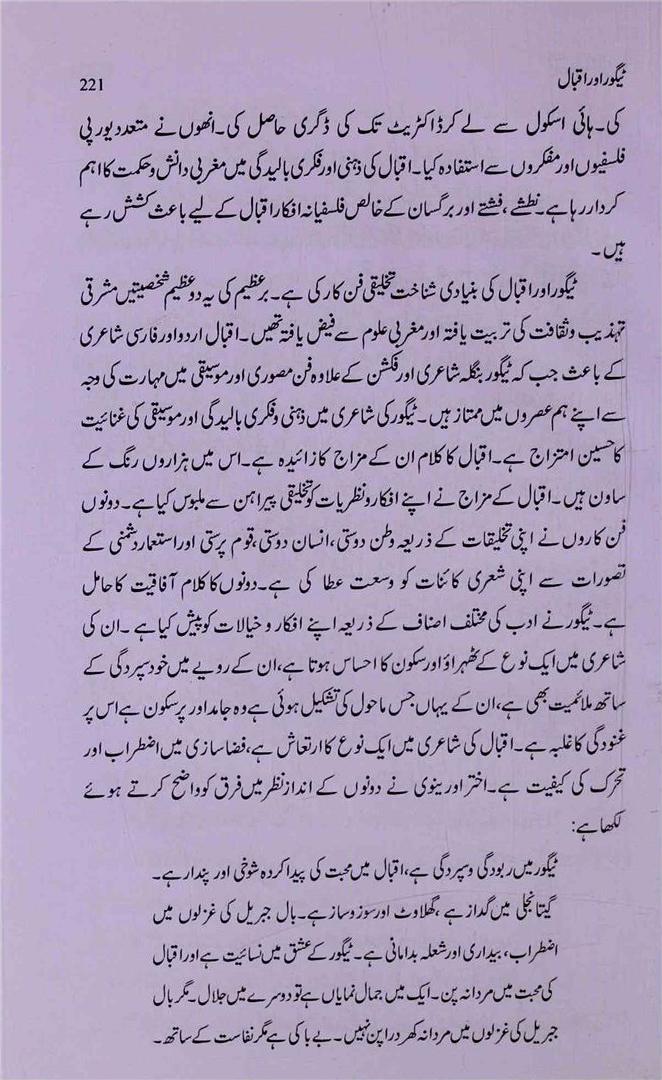 ٹیگور اور اقبال 221
کی۔ ہائی اسکول سے لے کر ڈاکٹریٹ تک کی ڈگری حاصل کی۔ انھوں نے متعدد یورپی
فلسفیوں اور مفکروں سے استفادہ کیا۔ اقبال کی ذہنی اور فکری بالیدگی میں مغربی دانش و حکمت کا اہم
کردار رہا ہے۔ نطشے، فشتے اور برگساں کے خالص فلسفیانہ افکار اقبال کے لیے باعث کشش رہے
ہیں۔
ٹیگور اور اقبال کی بنیادی شناخت تخلیقی فن کار کی ہے۔ برعظیم کی یہ دو عظیم شخصیتیں مشرقی
تہذیب و ثقافت کی تربیت یافتہ اور مغربی علوم سے فیض یافتہ تھیں۔ اقبال اردو اور فارسی شاعری
کے باعث جب کہ ٹیگور بنگلہ شاعری اور فکشن کے علاوہ فن مصوری اور موسیقی میں مہارت کی وجہ
سے اپنے ہم عصروں میں ممتاز ہیں۔ ٹیگور کی شاعری میں ذہنی و فکری بالیدگی اور موسیقی کی غنائیت
کا حسین امتزاج ہے۔ اقبال کا کلام ان کے مزاج کا زائیدہ ہے۔ اس میں ہزاروں رنگ کے
ساون ہیں۔ اقبال کے مزاج نے اپنے افکار و نظریات کو تخلیقی پیراہن سے ملبوس کیا ہے۔ دونوں
فن کاروں نے اپنی تخلیقات کے ذریعہ وطن دوستی، انسان دوستی، قوم پرستی اور استعمار دشمنی کے
تصورات سے اپنی شعری کائنات کو وسعت عطا کی ہے۔ دونوں کا کلام آفاقیت کا حامل
ہے۔ ٹیگور نے ادب کی مختلف اصناف کے ذریعہ اپنے افکار و خیالات کو پیش کیا ہے۔ ان کی
شاعری میں ایک نوع کے ٹھہراؤ اور سکون کا احساس ہوتا ہے، ان کے رویے میں خود سپردگی کے
ساتھ ملائمیت بھی ہے، ان کے یہاں جس ماحول کی تشکیل ہوئی ہے وہ جامد اور پرسکون ہے اس پر
غنودگی کا غلبہ ہے۔ اقبال کی شاعری میں ایک نوع کا ارتعاش ہے، فضا سازی میں اضطراب اور
تحرک کی کیفیت ہے۔ اختر اورینوی نے دونوں کے انداز نظر میں فرق کو واضح کرتے ہوئے
لکھا ہے:
ٹیگور میں ربودگی و سپردگی ہے، اقبال میں محبت کی پیدا کردہ شوخی اور پندار ہے۔
گیتانجلی میں گداز ہے، گھلاوٹ اور سوز و ساز ہے۔ بال جبریل کی غزلوں میں
اضطراب، بیداری اور شعلہ بدامانی ہے۔ ٹیگور کے عشق میں نسائیت ہے اور اقبال
کی محبت میں مردانہ پن۔ ایک میں جمال نمایاں ہے تو دوسرے میں جلال۔ مگر بال
جبریل کی غزلوں میں مردانہ کھردراپن نہیں۔ بے باکی ہے مگر نفاست کے ساتھ۔